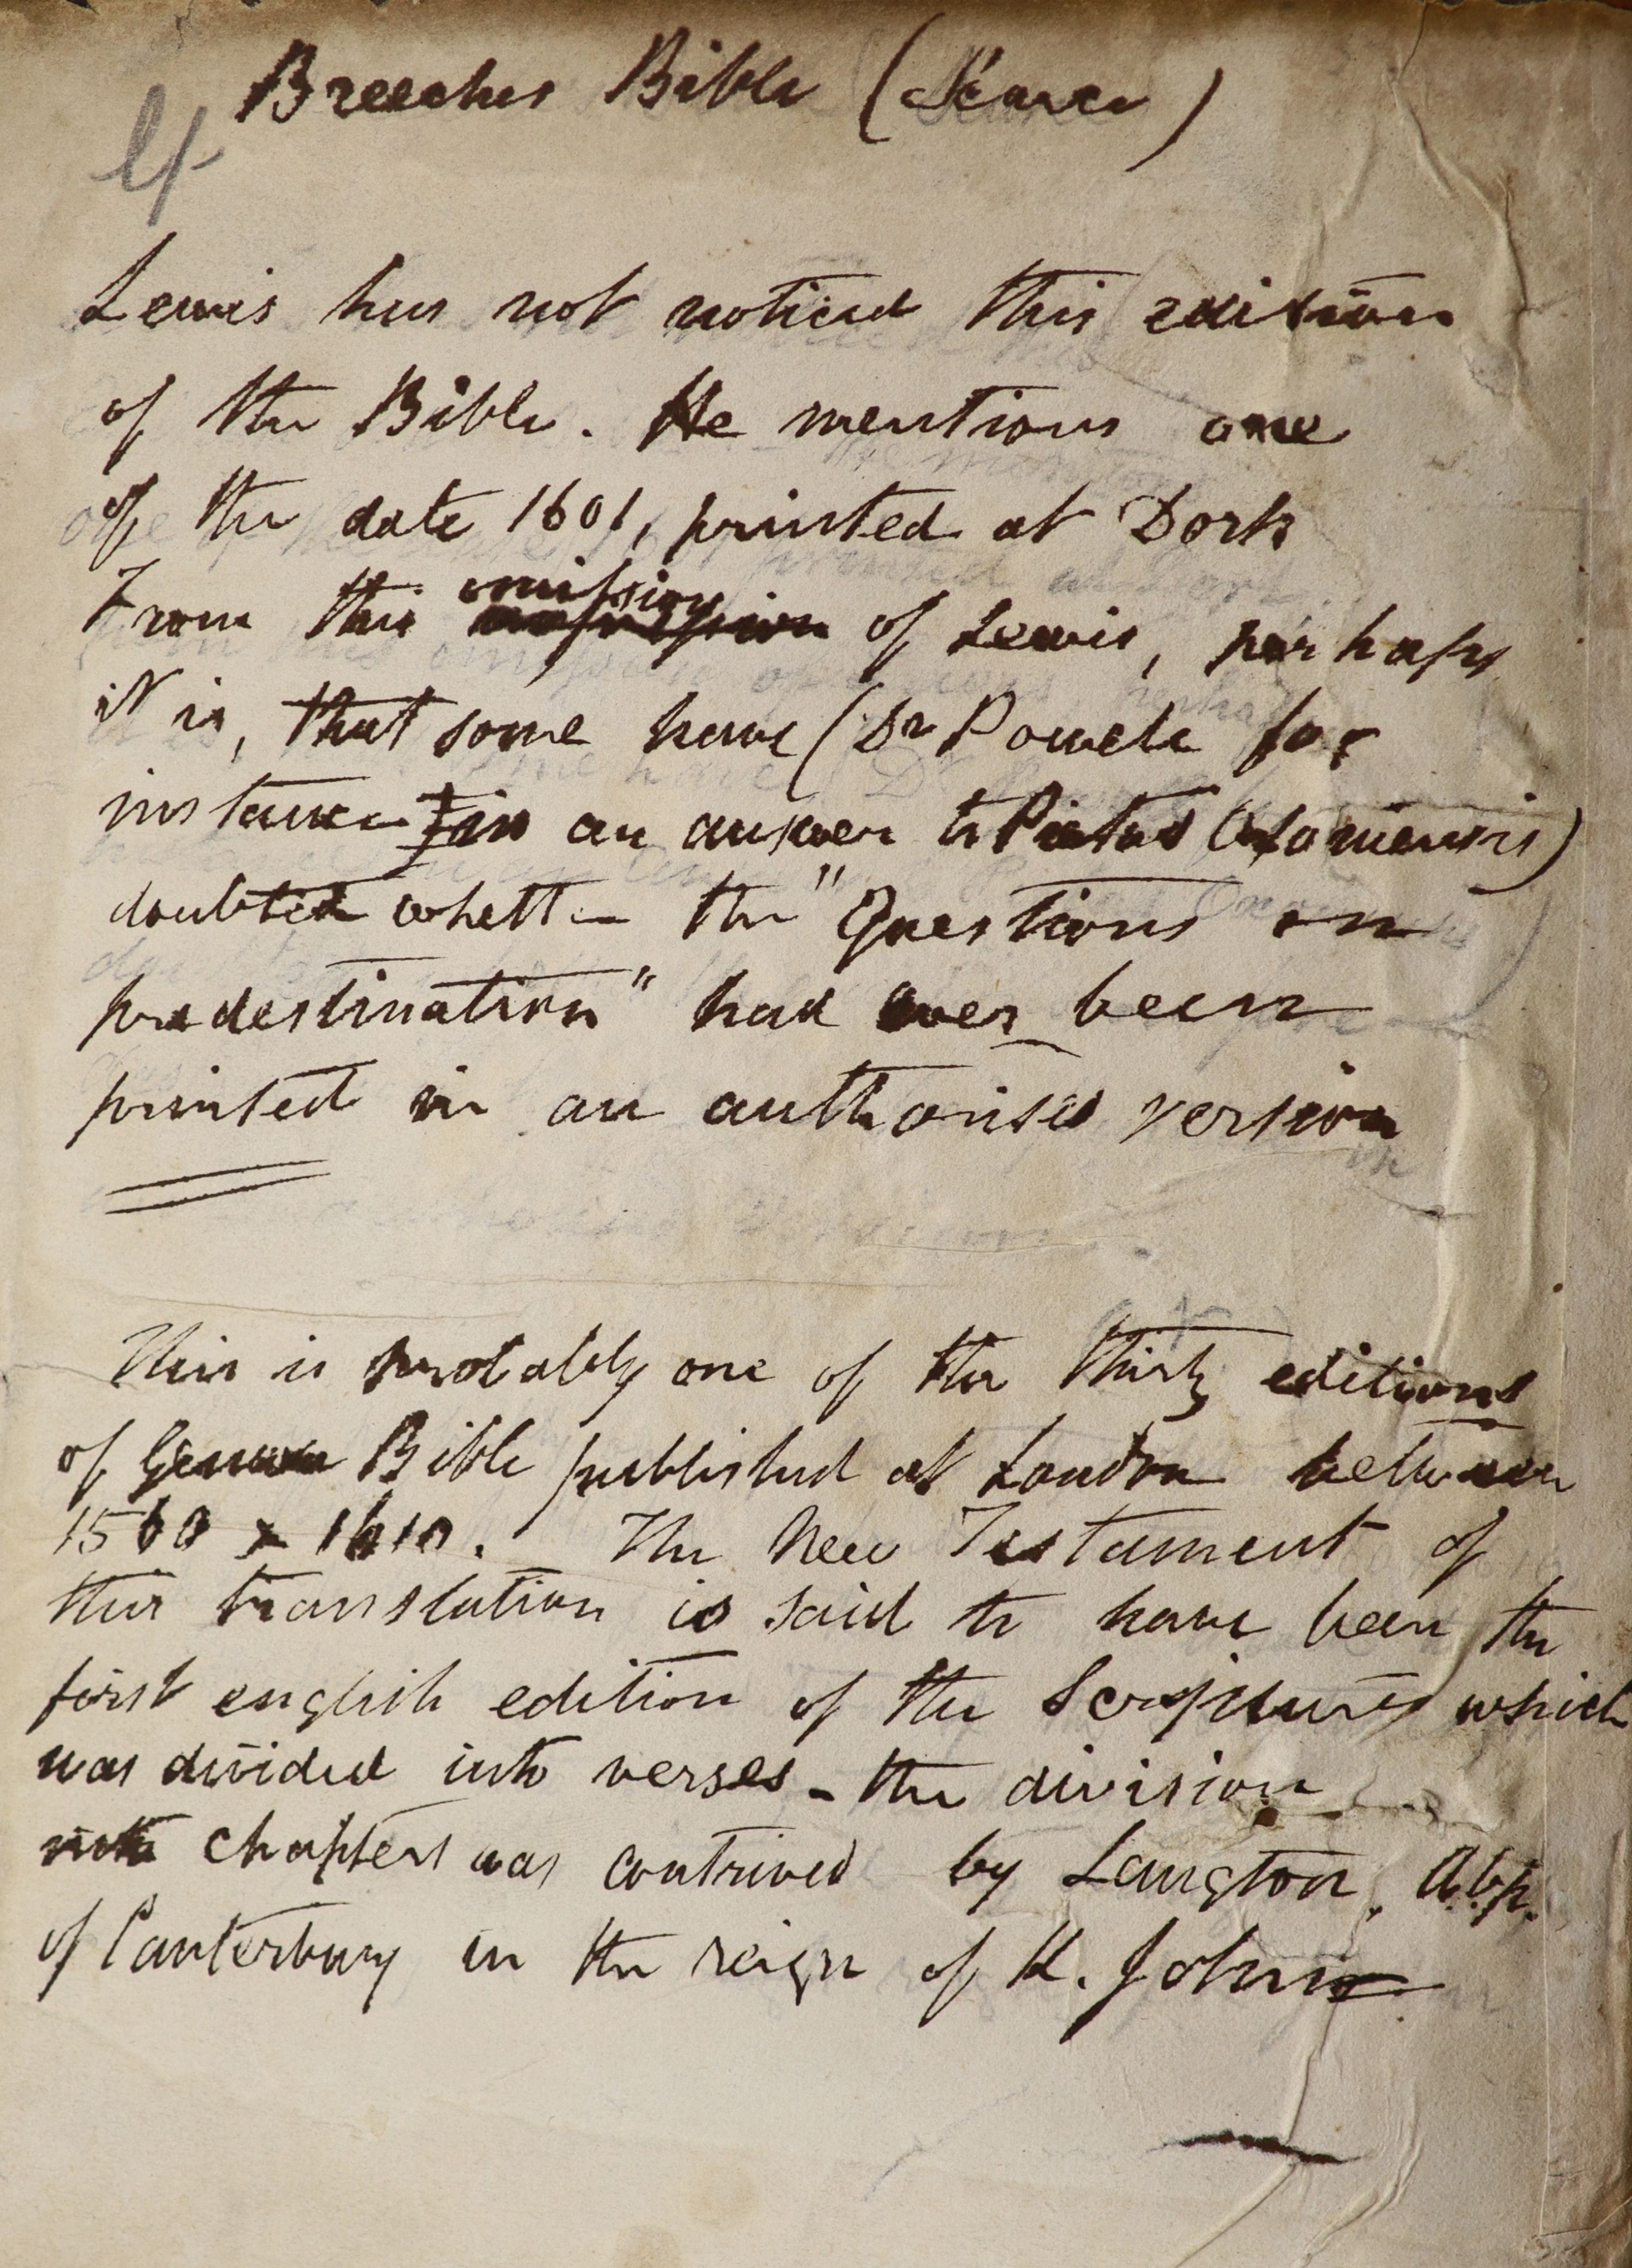 Breeches Bible (Scarce)
Lewis has not noticed this edition
of the Bible. He mentions one
of the date 1601, printed at Dort
From this omission of Lewis, perhaps
it is, that some have (Dr Powell for
instance in an answer to Pietas Oxoniensis)
doubted whether the "Questions on
predestination" had ever been
printed in an authorised version
This is probably one of the thirty editions
of Geneva Bible published at London between
1560 & 1610. The New Testament of
this translation is said to have been the
first english edition of the Scriptures which
was divided into verses - the division
into chapters was contrived by Langton, Abp.
of Canterbury in the reign of K. John